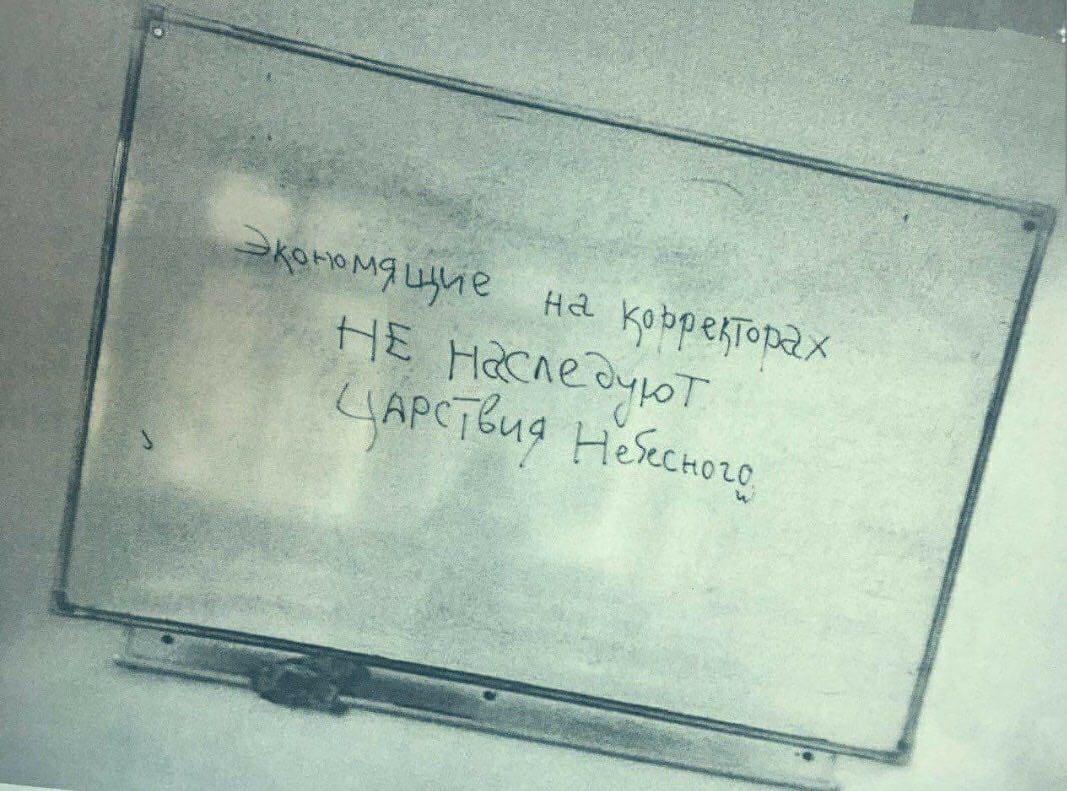 Экономящие на корректорах
НЕ наследуют
ЦАРСТвия Небесного